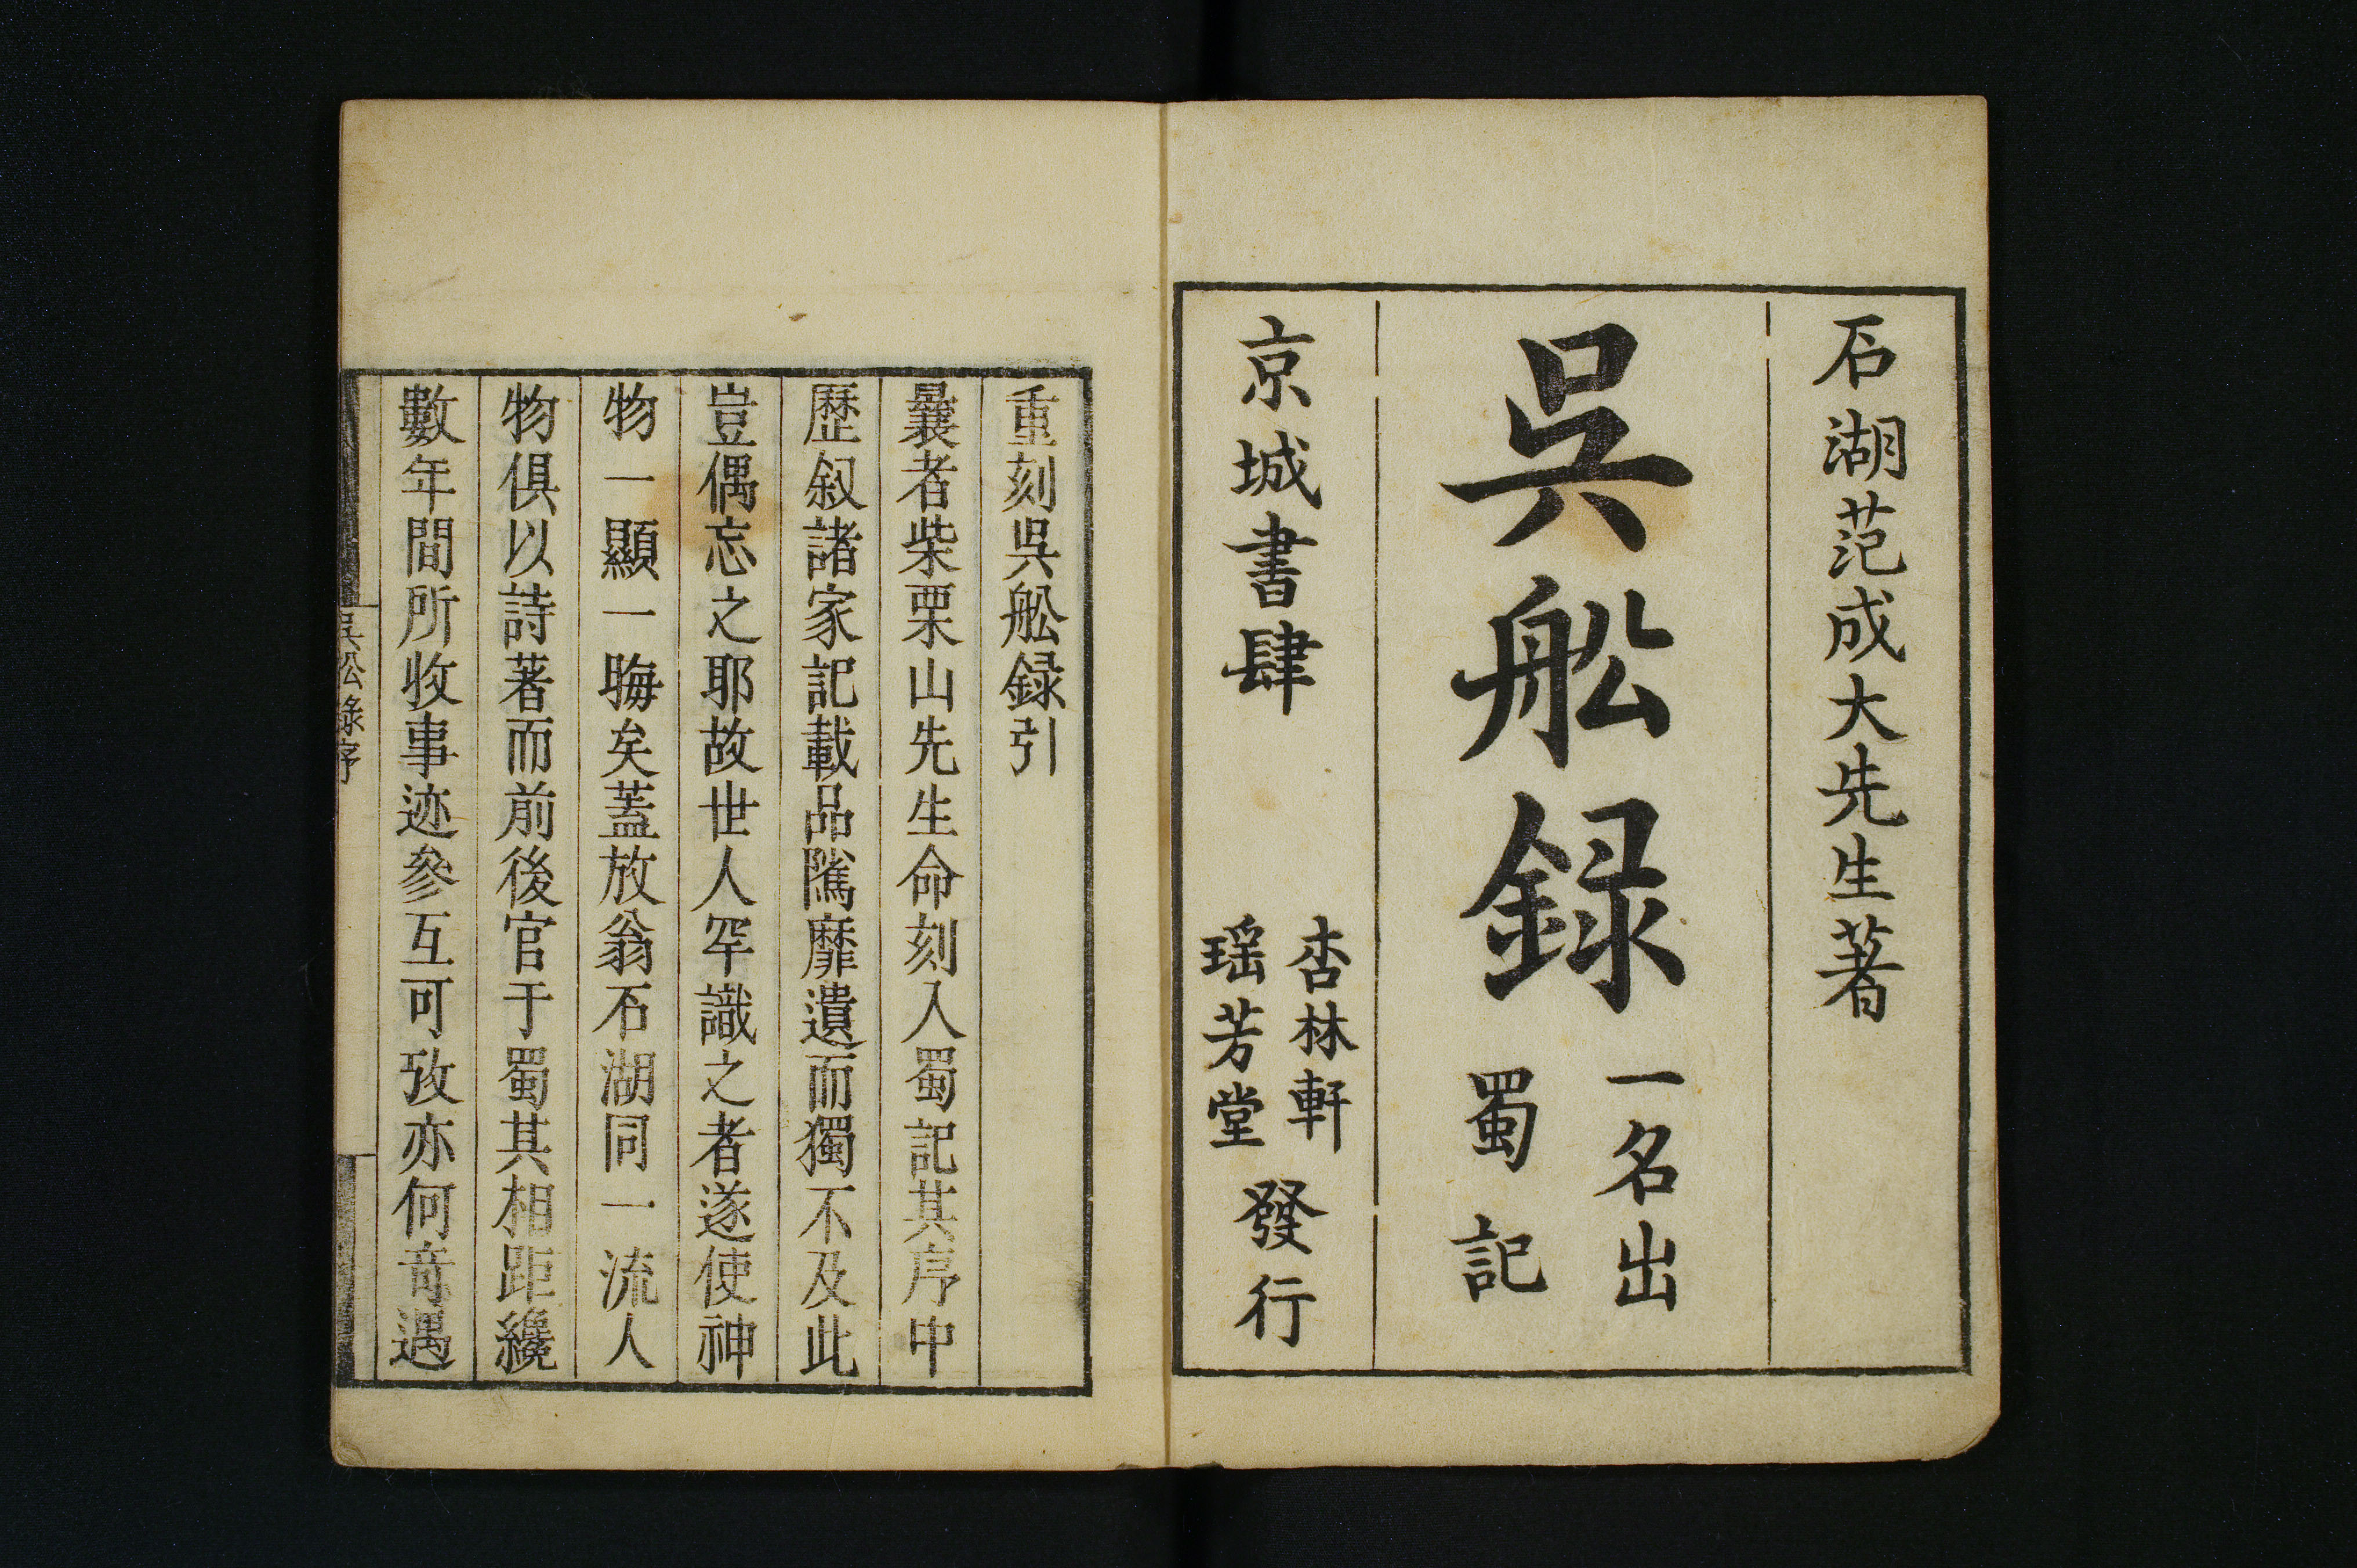 石湖范成大先生著
呉舩録
一名出
蜀記
京城書肆
杏林軒
瑶芳堂
發行
重刻呉舩録引
曩者柴栗山先生命刻入蜀記其序中
歴叙諸家記載品隲靡遺而獨不及此
豈偶忘之耶故世人罕識之者遂使神
物一顯一晦矣蓋放翁石湖同一流人
物俱以詩著而前後官于蜀其相距纔
數年間所收事迹參互可攷亦何奇遇
呉舩録序